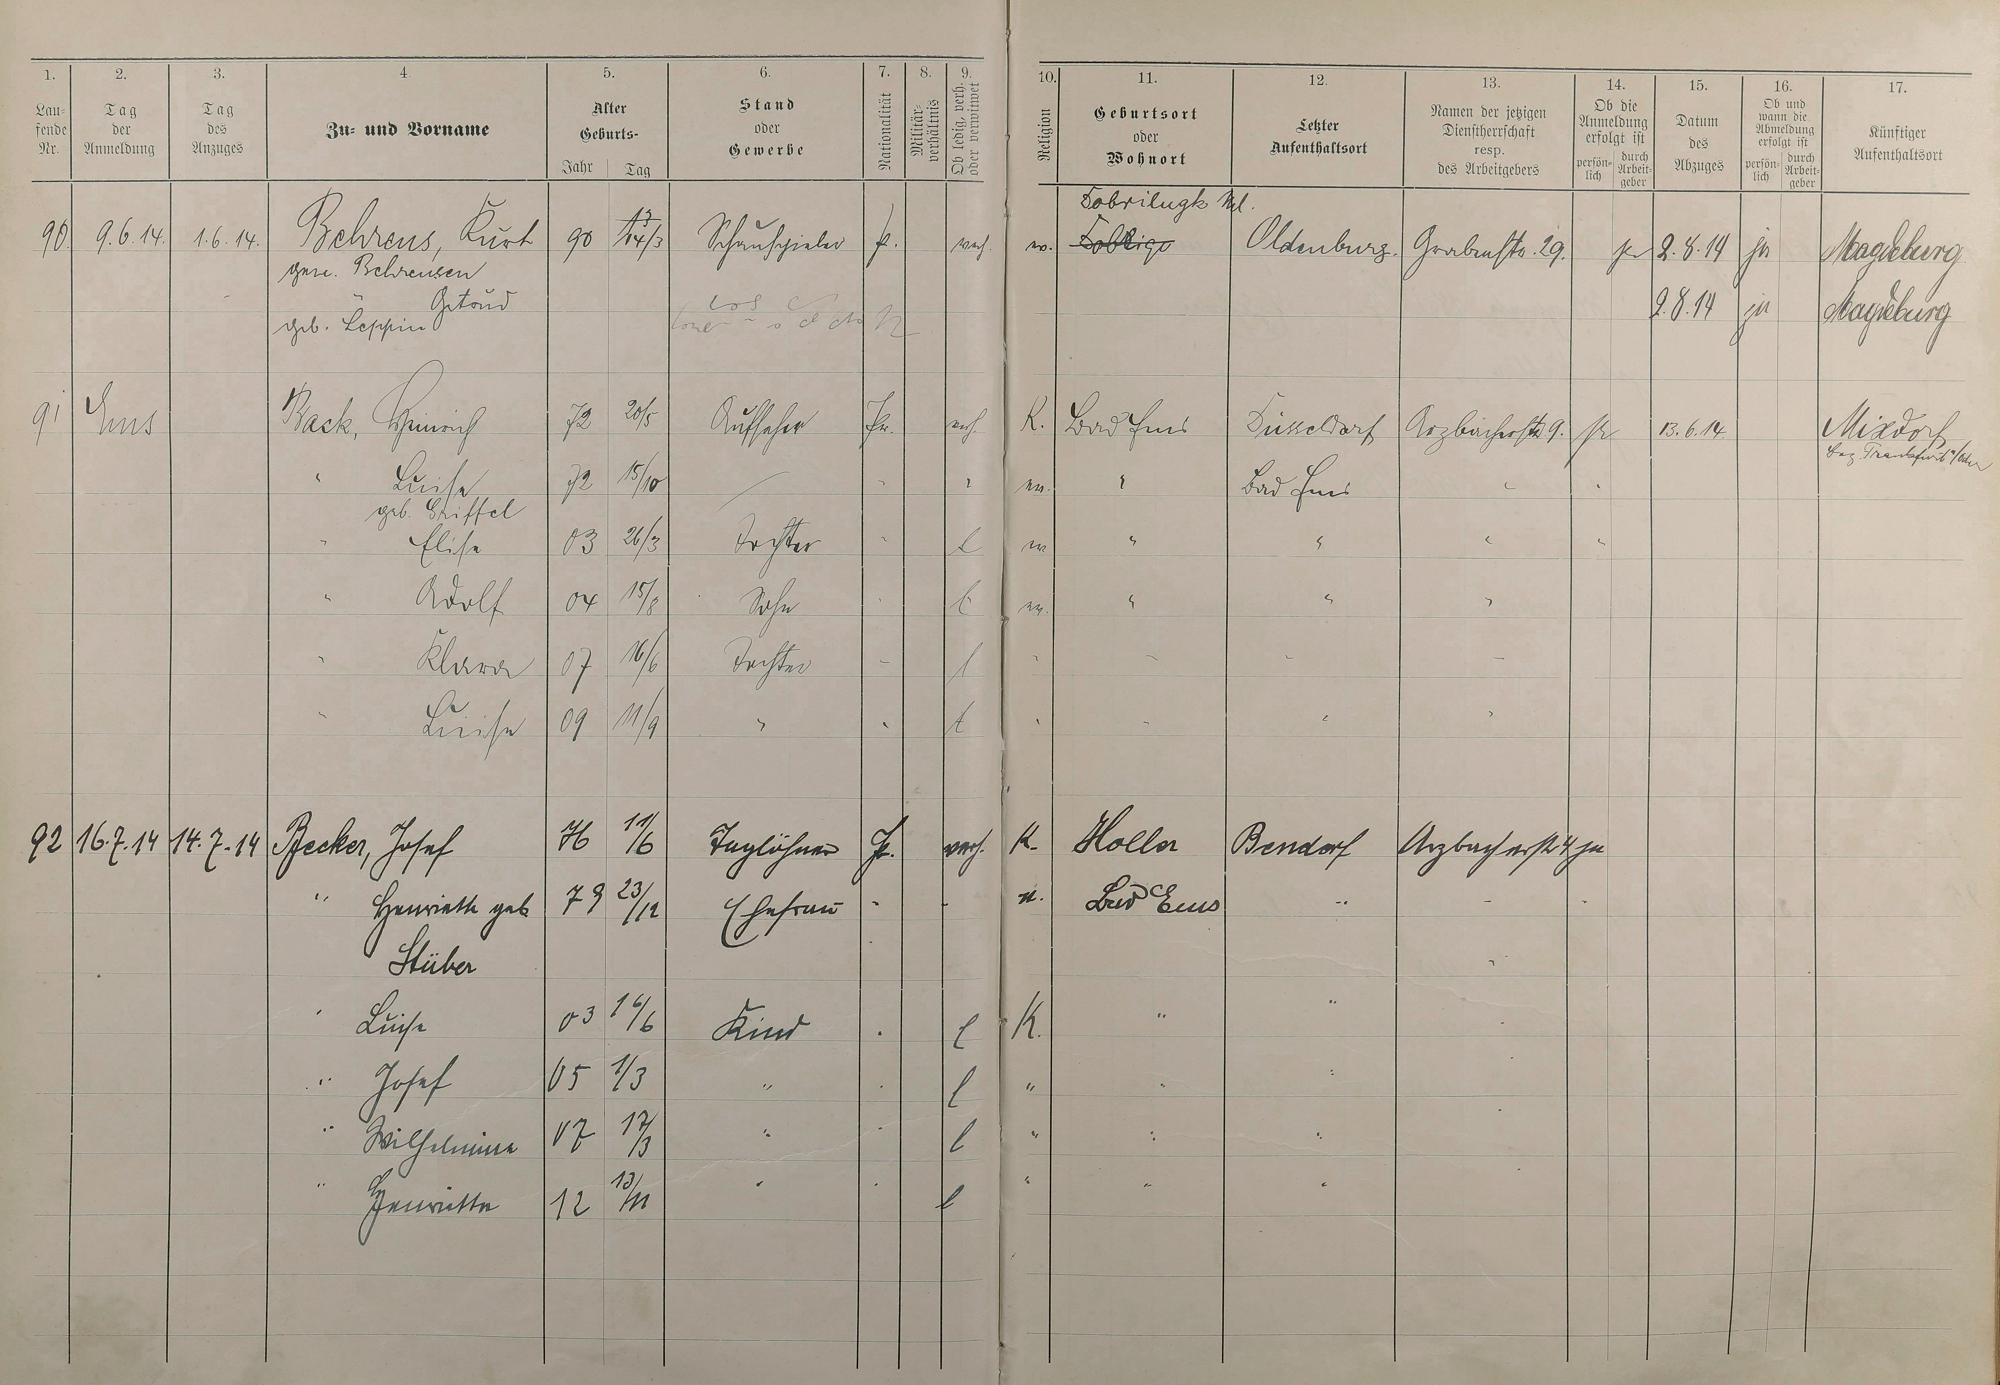 1. 2. 3. 4. 5. 6. 7. 8. 9. 10. 11. 12. 13. 14. 15. 16. 17.
Laufende Nr.
Tag der Anmeldung
Tag des Anzuges
Zu- und Vorname
Alter Geburts- Jahr Tag
Stand oder Gewerbe
Nationalität
Militärverhältnis
Ob ledig, verh. oder verwitwet
Religion
Geburtsort oder Wohnort
Letzter Aufenthaltsort
Namen der jetzigen Dienstherrschaft resp. des Arbeitgebers
Ob die Anmeldung erfolgt ist persönlich durch Arbeitgeber
Datum des Abzuges
Ob und wann die Abmeldung erfolgt ist persönlich durch Arbeitgeber
Künftiger Aufenthaltsort
Dobrilugk
90 9.6.14. 1.6.14. Behrens, Kurt 90 Schauspieler p. verh. ev. Oldenburg. Grabenstr. 29. ja 2.8.14 ja Magdeburg
gen. Behrensen
" Gertrud 2.8.14 ja Magdeburg
geb. Leppin
91 Ems Back, Heinrich 72 20/5 Aufseher Pr. verh. K. Bad Ems Düsseldorf Arzbacherstr 9. pr 13.6.14 Mixdorf
bez. Frankfurt a/Oder
" Luise 72 15/10 " " ev. " Bad Ems " "
geb. Griffel
" Elise 03 26/3 Tochter " l ev " " " "
" Adolf 04 15/8 Sohn " l ev. " " "
" Klara 07 16/6 Tochter " l " " " "
" Luise 09 11/9 " " l " " " "
92 16.7.14 14.7.14 Becker, Josef 76 11/6 Taglöhner Pr. verh. K. Holler Bendorf Arzbacherstr 4 ja
" Henriette geb 79 23/12 Ehefrau " " ev. Bad Ems " " "
Stüber "
" Luise 03 16/6 Kind " l K. " "
" Josef 05 1/3 " " l " " "
" Wilhelmine 07 17/3 " " l " " "
" Henriette 12 13/11 " " l " " "